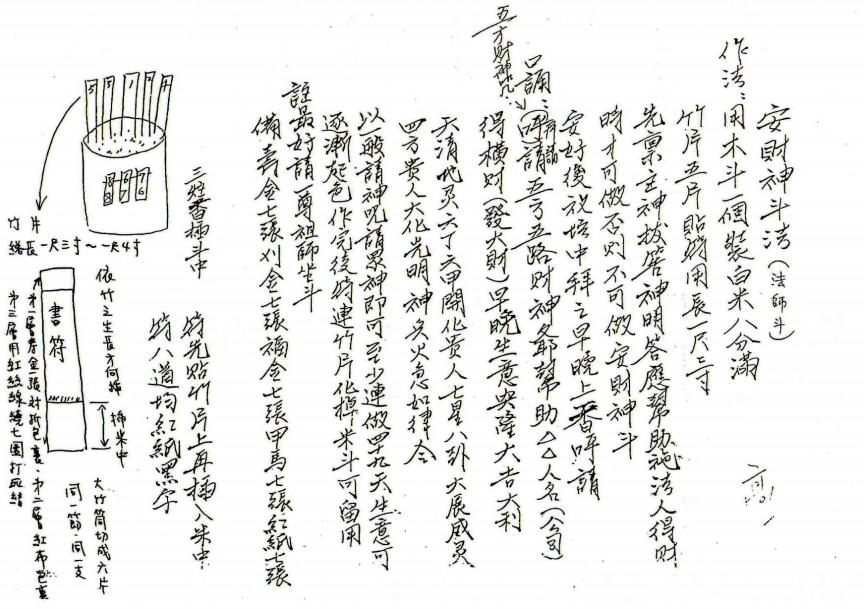 安財神斗法(法師斗)
作法:用木斗一個裝白米八分滿
竹片五片貼符用長一尺三寸
先稟主神拔筶神明答應幫助施法人得財
時才可做否則不可做安財神斗
安好後放壇中拜之早晚上香呼請
口誦:呼請五方五路財神爺幫助△△人名(公司)
五方財神咒:
得橫財(發大財)早晚生意興隆大吉大利
天清地灵六丁六甲開化貴人七星八卦大展威灵
四方貴人大化光明神兵火急如律令
以一般請神咒請眾神即可至少連做四十九天生意可
逐漸起色作完後符連竹片化掉米斗可留用
註最好請一尊祖師坐斗
備壽金七張刈金七張福金七張甲馬七張紅紙七張
符先貼竹片上再插入米中
符八道均紅紙黑字
三炷香插斗中
5 3 1 2 4
8 6 7
竹片
總長一尺三寸~一尺4寸
依竹之生長方向插
插米中
書符
大竹筒切成六片
同一節.同一支
第一層壽金一張對折包裹.第二層紅布包裹
第三層用紅絲線繞七圈打死結